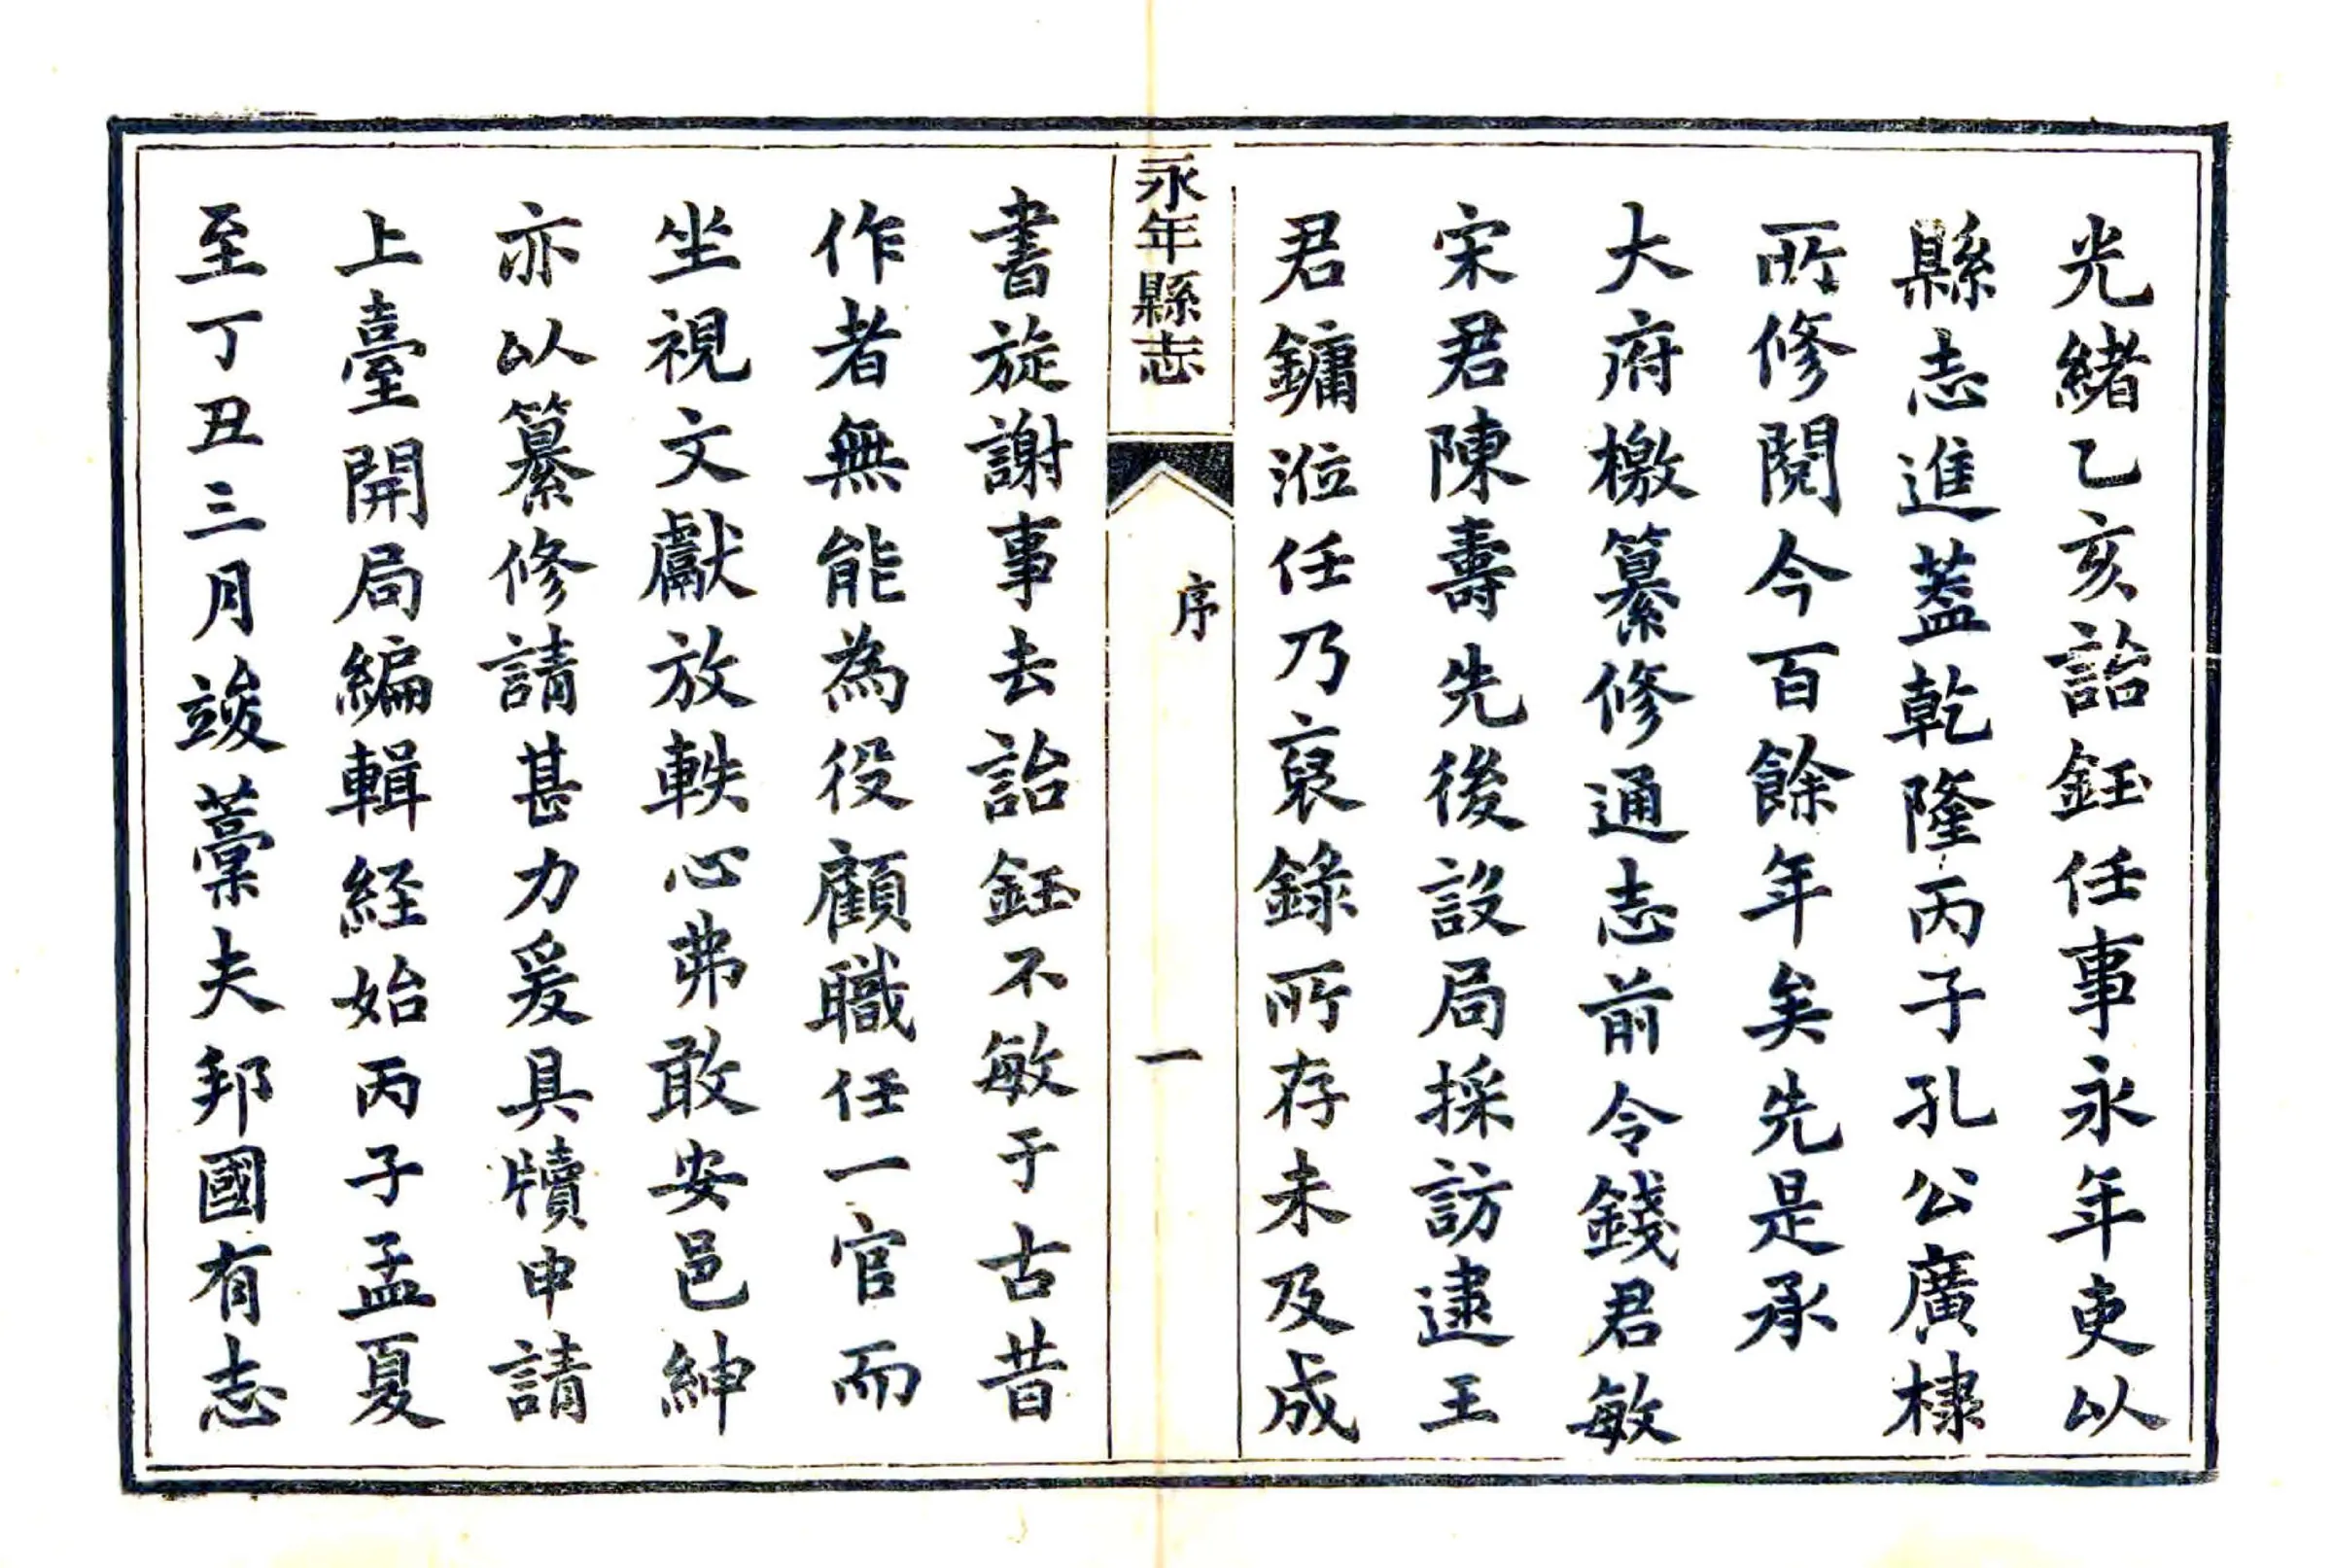 光緒乙亥詒鈺任事永年吏以
縣志進葢乾隆丙子孔公廣棣
所修閱今百餘年矣先是承
大府檄纂修通志前令錢君敏
宋君陳壽先後設局採訪逮王
君鏞涖任乃裒錄所存未及成
永年縣志
序
一
書旋謝事去詒鈺不敏于古昔
作者無能為役顧職任一官而
坐視文獻放軼心弗敢安邑紳
亦以纂修請甚力爰具牘申請
上臺開局編輯経始丙子孟夏
至丁丑三月竣藁夫邦國有志